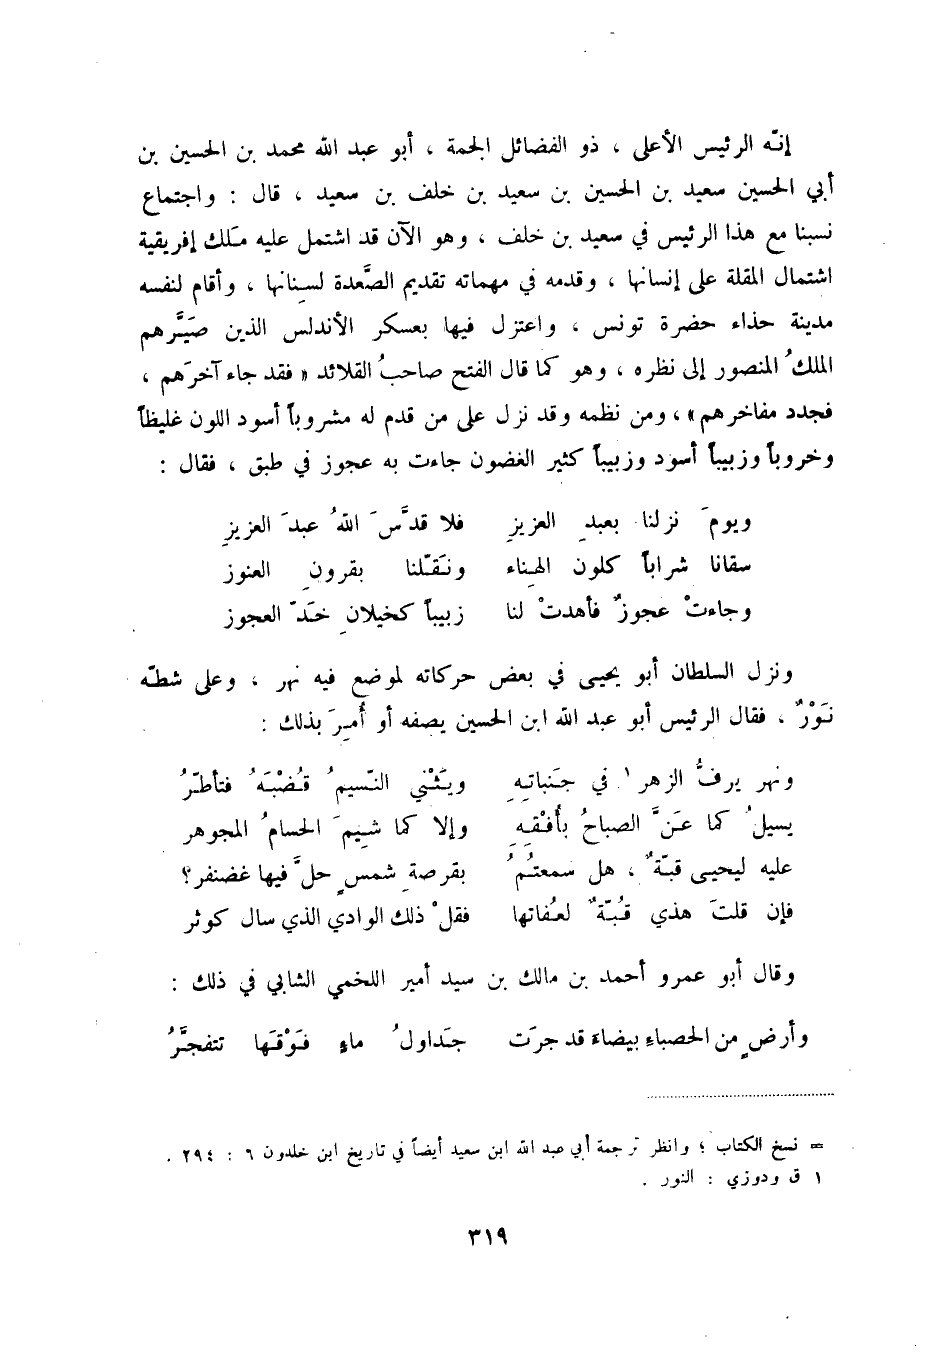 إنّه الرئيس الأعلى ، ذو الفضائل الجمة ، أبو عبد الله محمد بن الحسين بن
أبي الحسين سعيد بن الحسين بن سعيد بن خلف بن سعيد ، قال : واجتماع
نسبنا مع هذا الرئيس في سعيد بن خلف ، وهو الآن قد اشتمل عليه مَلك إفريقية
اشتمال المقلة على إنسانها ، وقدمه في مهماته تقديم الصَّعدة لسِنانها ، وأقام لنفسه
مدينة حذاء حضرة تونس ، واعتزل فيها بعسكر الأندلس الذين صَيَّرهم
الملكُ المنصور إلى نظره ، وهو كما قال الفتح صاحبُ القلائد « فقد جاء آخرَهم ،
فجدد مفاخرهم » ، ومن نظمه وقد نزل على من قدم له مشروباً أسود اللون غليظاً
وخروباً وزبيباً أسود وزبيباً كثير الغضون جاءت به عجوز في طبق ، فقال :
ويومَ نزلنا بعبدِ العزيزِ فلا قدَّسَ اللهُ عبدَ العزيزِ
سقانا شراباً كلون الهِناء ونَقّلنا بقرونِ العنوز
وجاءتْ عجوزٌ فأهدتْ لنا زبيباً كخيلانِ خَدّ العجوز
ونزل السلطان أبو يحيى في بعض حركاته لموضع فيه نهر ، وعلى شطّه
نَوْرٌ ، فقال الرئيس أبو عبد الله ابن الحسين يصفه أو أُمِرَ بذلك :
ونهر يرفُّ الزهر ١ في جَنباتِهِ ويَثْني النّسيمُ قُضْبَهُ فتأطّرُ
يسيلُ كما عَنَّ الصباحُ بأُفْقِهِ وإلا كما شِيمَ الحسامُ المجوهر
عليه ليحيى قبّةٌ ، هل سمعتُمُ بقرصةِ شمسٍ حلَّ فيها غضنفر؟
فإن قلتَ هذي قُبّةٌ لعُفاتها فقلْ ذلك الوادي الذي سال كوثر
وقال أبو عمرو أحمد بن مالك بن سيد أمير اللخمي الشابي في ذلك :
وأرضٍ من الحصباءِ بيضاءَ قد جرَت جَداولُ ماءٍ فَوْقَها تتفجَّرُ
= نسخ الكتاب ؛ وانظر ترجمة أبي عبد الله ابن سعيد أيضاً في تاريخ ابن خلدون ٦ : ٢٩٤ .
١ ق ودوزي : النور .
٣١٩